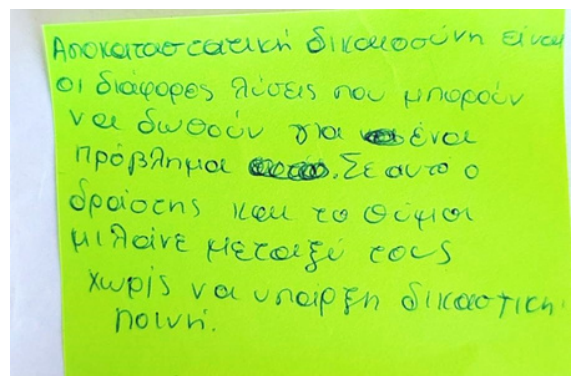 Αποκαταστατική δικαιοσύνη είναι
οι διάφορες λύσεις που μπορούν
να δωθούν για ένα
πρόβλημα. Σε αυτό ο
δράστης και το θύμα
μιλάνε μεταξύ τους
χωρίς να υπάρξη δικαστική
ποινή.